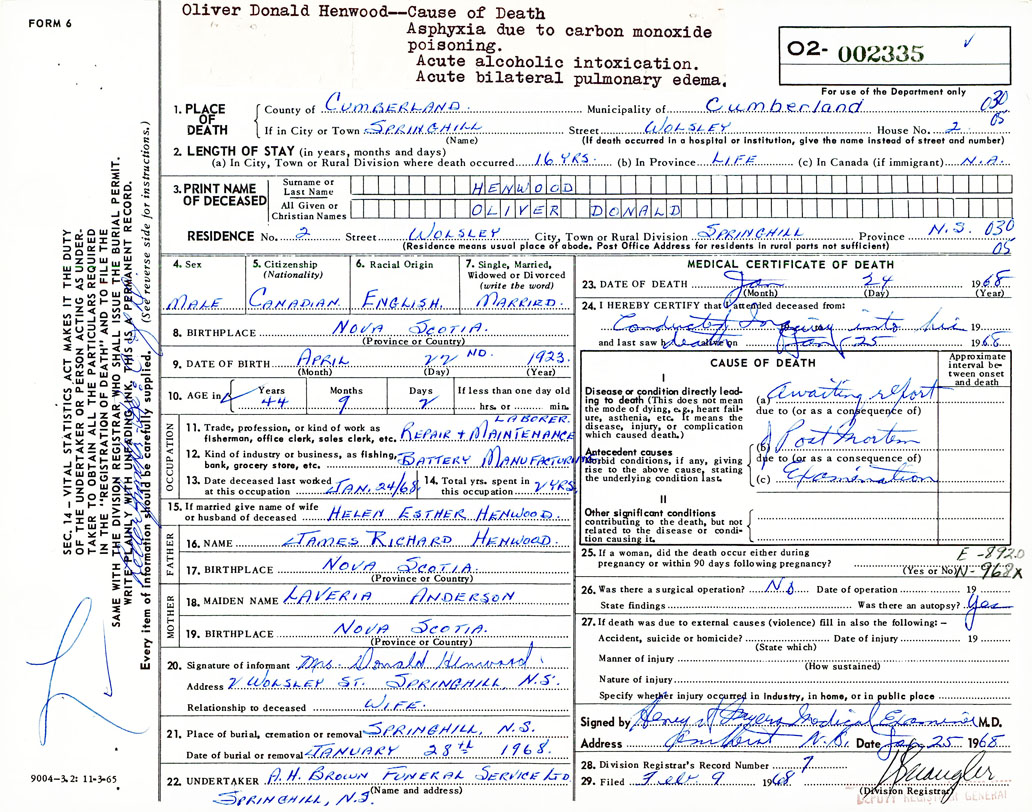 FORM 6
Oliver Donald Henwood--Cause of Death
Asphyxia due to carbon monoxide
poisoning.
Acute alcoholic intoxication.
Acute bilateral pulmonary edema.
02- 002335
For use of the Department only
1. PLACE OF DEATH
County of CUMBERLAND Municipality of Cumberland 030
05
If in City or Town SPRINGHILL Street WOLSLEY House No. 2
(Name) (If death occurred in a hospital or institution, give the name instead of street and number)
2. LENGTH OF STAY (in years, months and days)
(a) In City, Town or Rural Division where death occurred 16 YRS. (b) In Province LIFE (c) In Canada (if immigrant) N.A.
3. PRINT NAME OF DECEASED
Surname or Last Name HENWOOD
All Given or Christian Names OLIVER DONALD
RESIDENCE No. 2 Street WOLSLEY City, Town or Rural Division SPRINGHILL Province N.S. 030
05
(Residence means usual place of abode. Post Office Address for residents in rural parts not sufficient)
4. Sex MALE
5. Citizenship (Nationality) CANADIAN
6. Racial Origin ENGLISH
7. Single, Married, Widowed or Divorced (write the word) MARRIED.
8. BIRTHPLACE NOVA SCOTIA.
(Province or Country)
9. DATE OF BIRTH APRIL 22ND. 1923.
(Month) (Day) (Year)
10. AGE in Years 44 Months 9 Days 2 If less than one day old hrs. or min.
OCCUPATION
11. Trade, profession, or kind of work as fisherman, office clerk, sales clerk, etc. LABORER. REPAIR + MAINTENANCE
12. Kind of industry or business, as fishing, bank, grocery store, etc. BATTERY MANUFACTURING
13. Date deceased last worked at this occupation JAN. 24/68 14. Total yrs. spent in this occupation 2 YRS
15. If married give name of wife or husband of deceased HELEN ESTHER HENWOOD.
FATHER
16. NAME JAMES RICHARD HENWOOD.
17. BIRTHPLACE NOVA SCOTIA.
(Province or Country)
MOTHER
18. MAIDEN NAME LAVERIA ANDERSON
19. BIRTHPLACE NOVA SCOTIA.
(Province or Country)
20. Signature of informant Mrs. Donald Henwood.
Address 2 WOLSLEY ST. SPRINGHILL, N.S.
Relationship to deceased WIFE.
21. Place of burial, cremation or removal SPRINGHILL, N.S.
Date of burial or removal JANUARY 28th 1968.
22. UNDERTAKER A.H. BROWN FUNERAL SERVICE LTD
(Name and address)
SPRINGHILL, N.S.
MEDICAL CERTIFICATE OF DEATH
23. DATE OF DEATH Jan 24 1968
(Month) (Day) (Year)
24. I HEREBY CERTIFY that I attended deceased from:
Conducted Inquiry into his 19
and last saw h alive on death Jan 25 1968
CAUSE OF DEATH
Approximate interval between onset and death
I
Disease or condition directly leading to death (This does not mean the mode of dying, e.g., heart failure, asthenia, etc. It means the disease, injury, or complication which caused death.)
(a) Awaiting report
due to (or as a consequence of)
(b) of Post Mortem
Antecedent causes
Morbid conditions, if any, giving rise to the above cause, stating the underlying condition last.
due to (or as a consequence of)
(c) Examination
II
Other significant conditions
contributing to the death, but not related to the disease or condition causing it.
25. If a woman, did the death occur either during pregnancy or within 90 days following pregnancy? (Yes or No)
E-892.0
N-968X
26. Was there a surgical operation? No Date of operation 19
State findings Was there an autopsy? Yes
27. If death was due to external causes (violence) fill in also the following: -
Accident, suicide or homicide? Date of injury 19
(State which)
Manner of injury
(How sustained)
Nature of injury
Specify whether injury occurred in industry, in home, or in public place
Signed by Medical Examiner M.D.
Address Amherst N.S. Date Jan 25 1968
28. Division Registrar's Record Number 7
29. Filed Feb 9 1968
(Division Registrar)
DEPUTY REGISTRAR GENERAL
SEC. 14 - VITAL STATISTICS ACT MAKES IT THE DUTY
OF THE UNDERTAKER OR PERSON ACTING AS UNDER-
TAKER TO OBTAIN ALL THE PARTICULARS REQUIRED
IN THE "REGISTRATION OF DEATH" AND TO FILE THE
SAME WITH THE DIVISION REGISTRAR WHO SHALL ISSUE THE BURIAL PERMIT.
WRITE PLAINLY WITH UNFADING INK, THIS IS A PERMANENT RECORD.
Every item of information should be carefully supplied. (See reverse side for instructions.)
9004-3.2: 11-3-65